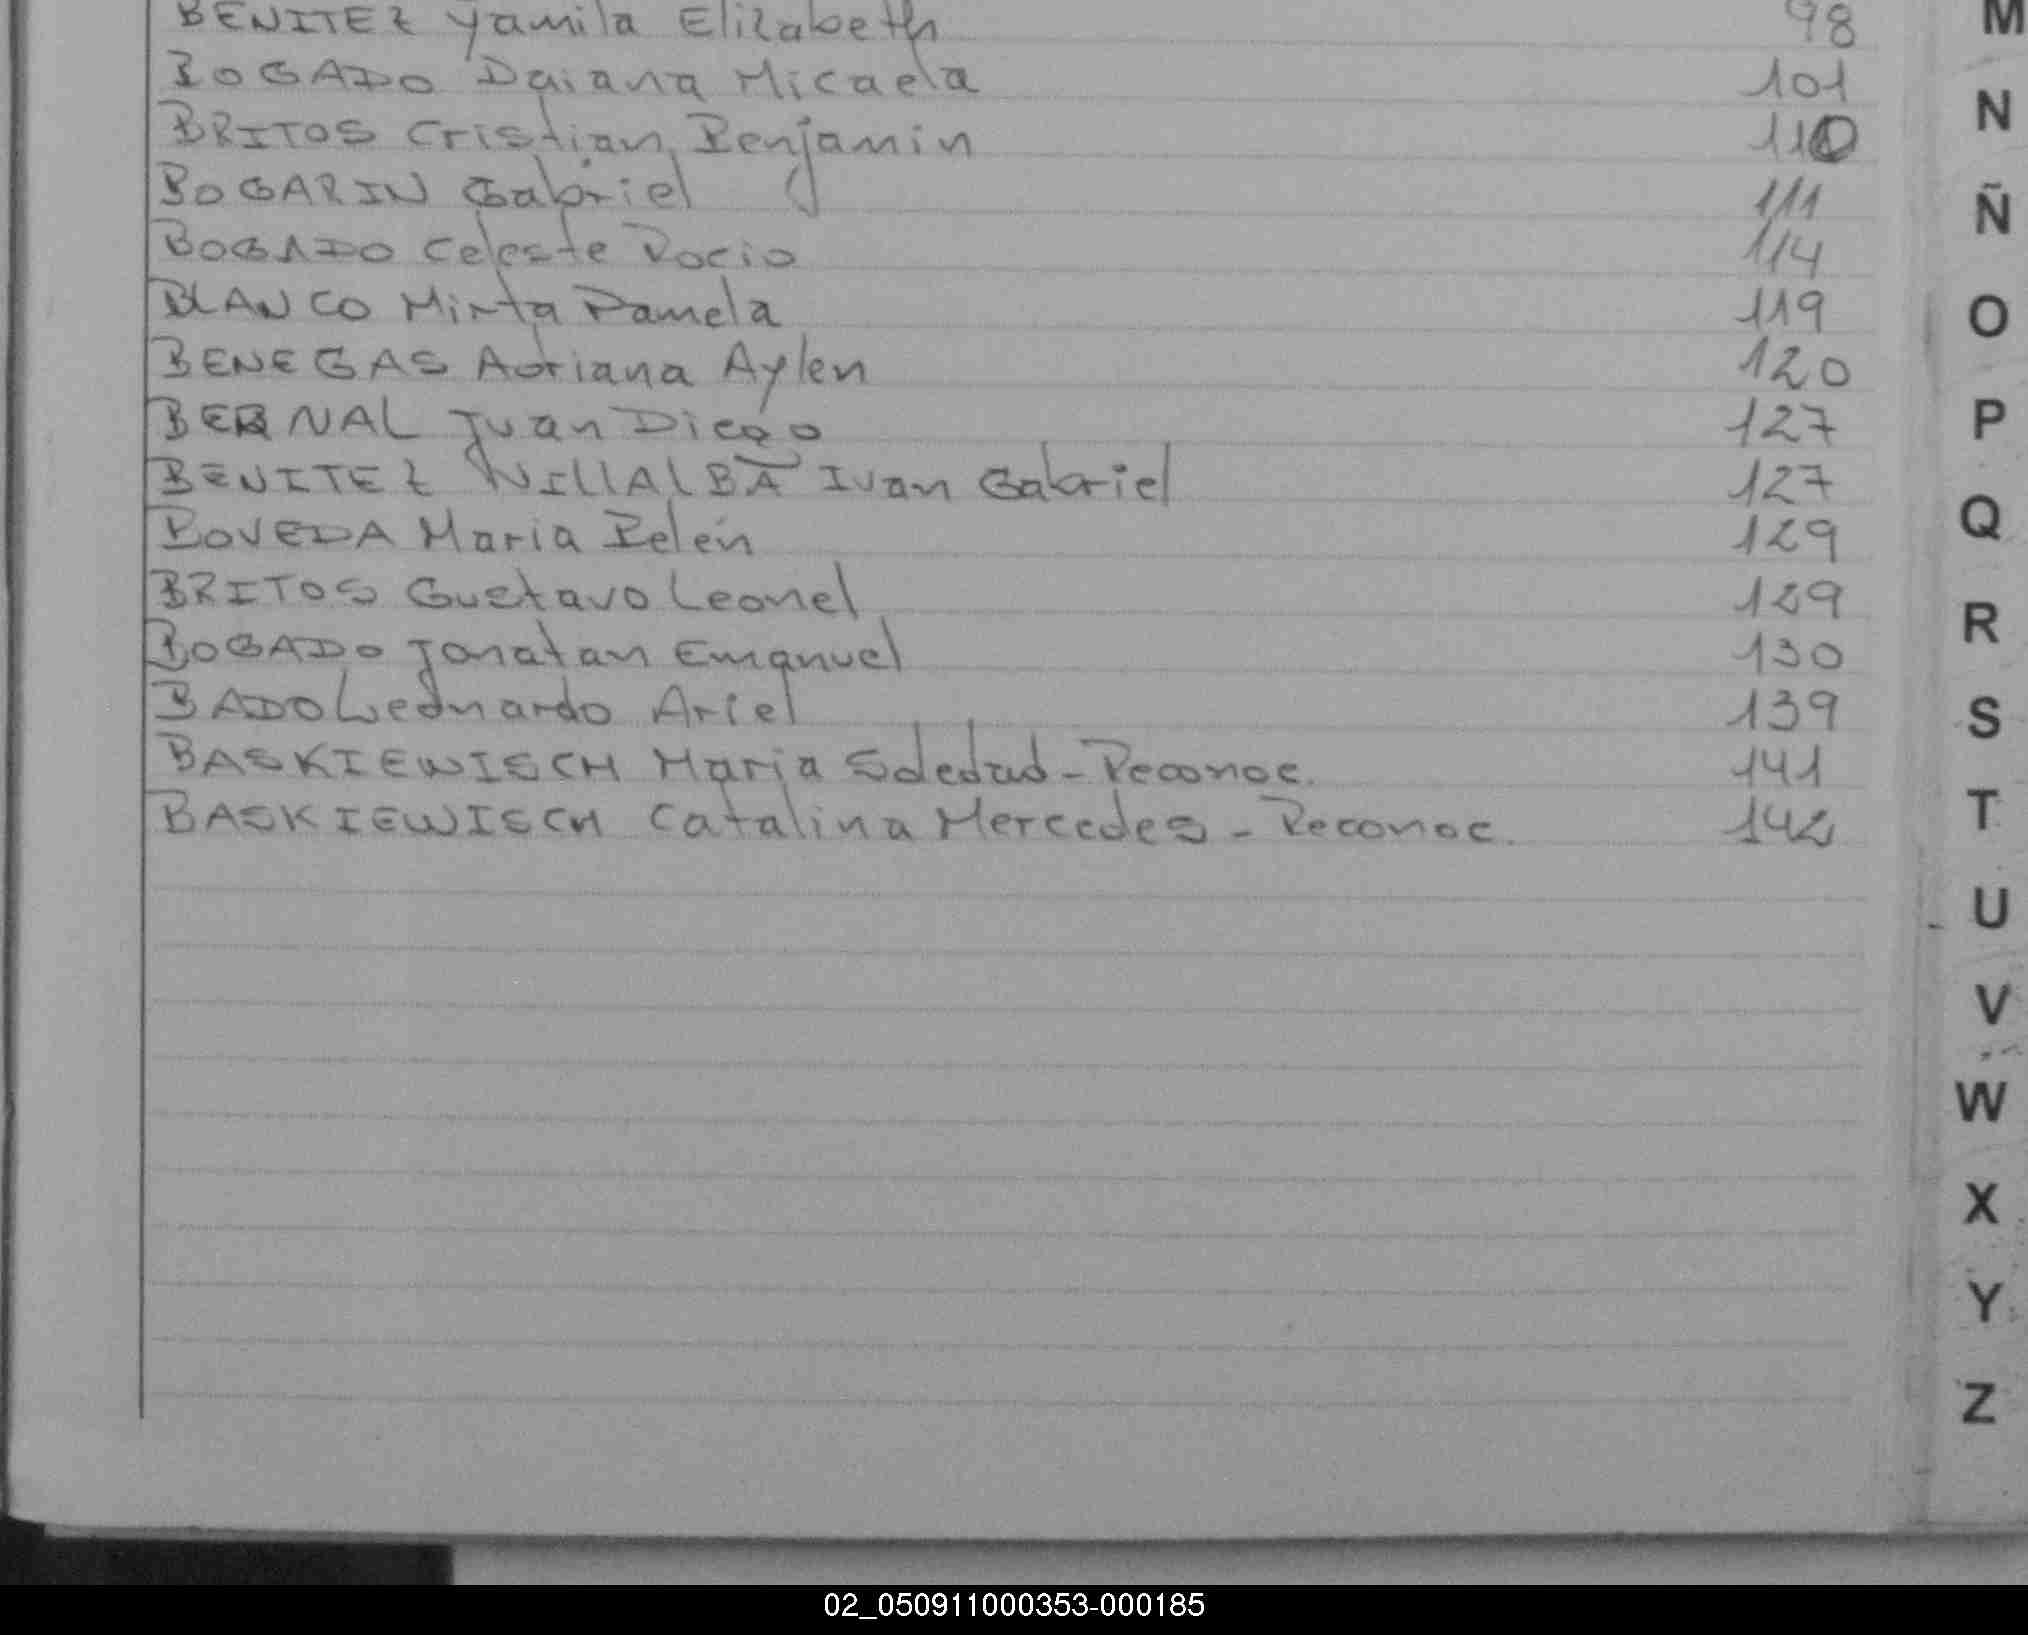 BENITEZ Yamila Elizabeth 98
BOGADO Daiana Micaela 101
BRITOS Cristian Benjamin 110
BOGARIN Gabriel 111
BOGADO Celeste Rocio 114
BLANCO Mirta Pamela 119
BENEGAS Adriana Aylen 120
BERNAL Juan Diego 127
BENITEZ VillAlBA Ivan Gabriel 127
BOVEDA Maria Belén 129
BRITOS Gustavo Leonel 129
BOGADO Jonatan Emanuel 130
BADO Leonardo Ariel 139
BASKIEWISCH Maria Soledad - Reconoc. 141
BASKIEWISCH Catalina Mercedes - Reconoc. 142
M
N
Ñ
O
P
Q
R
S
T
U
V
W
X
Y
Z
02_050911000353-000185